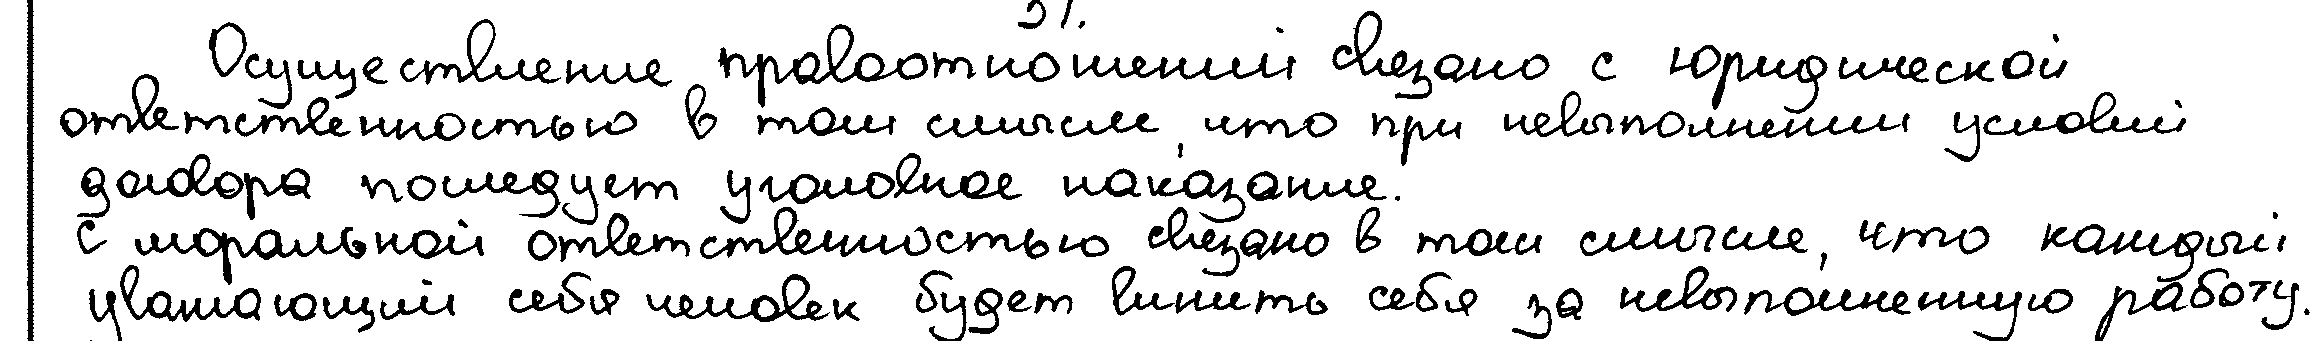 31.
Осуществление правоотношений связано с юридической
ответственностью в том смысле, что при невыполнении условий
договора последует уголовное наказание.
С моральной ответственностью связано в том смысле, что каждый
уважающий себя человек будет винить себя за невыполненную работу.